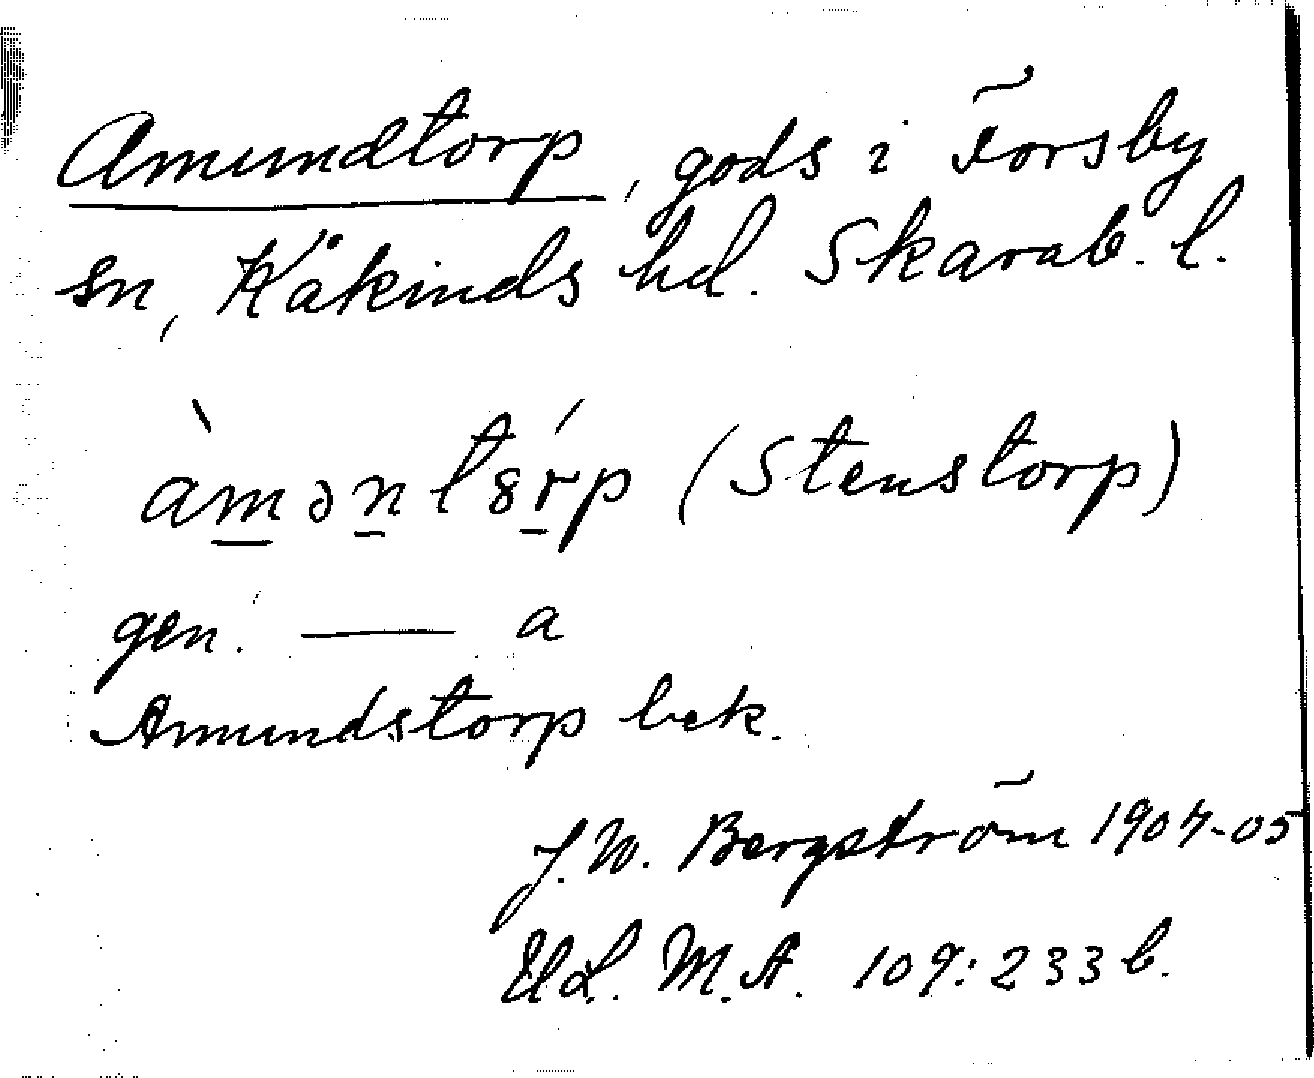 Amundtorp, gods i Forsby
sn, Kåkinds hd. Skarab. l.
àməntȣ́rp (Stenstorp)
gen. — a
Amundstorp bek.
J. W. Bergström 1904-05
ULMA. 109:233 b.